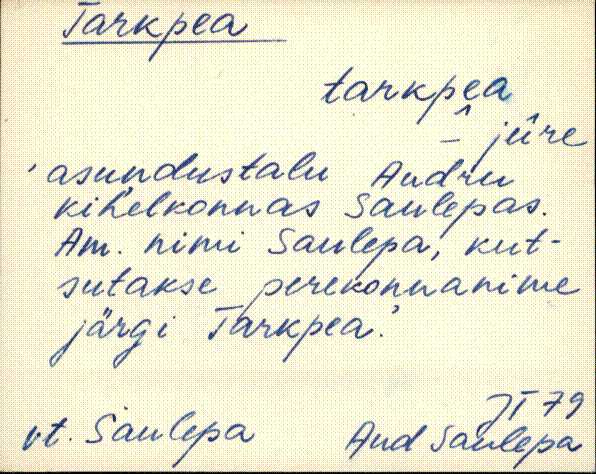 Tarkpea
tarkpea
- jûre
'asundustalu Audru
kihelkonnas Saulepas.
Am. nimi Saulepa, kut-
sutakse perekonnanime
järgi Tarkpea.'
JT 79
vt. Saulepa Aud Saulepa